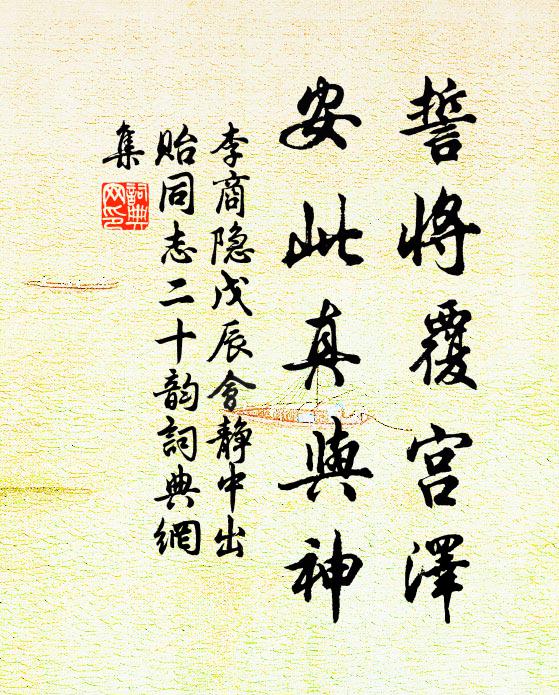 誓将覆宫澤
安此真與神
李商隐戊辰會静中出
贻同志二十韵詞典網
集
詞典
网印